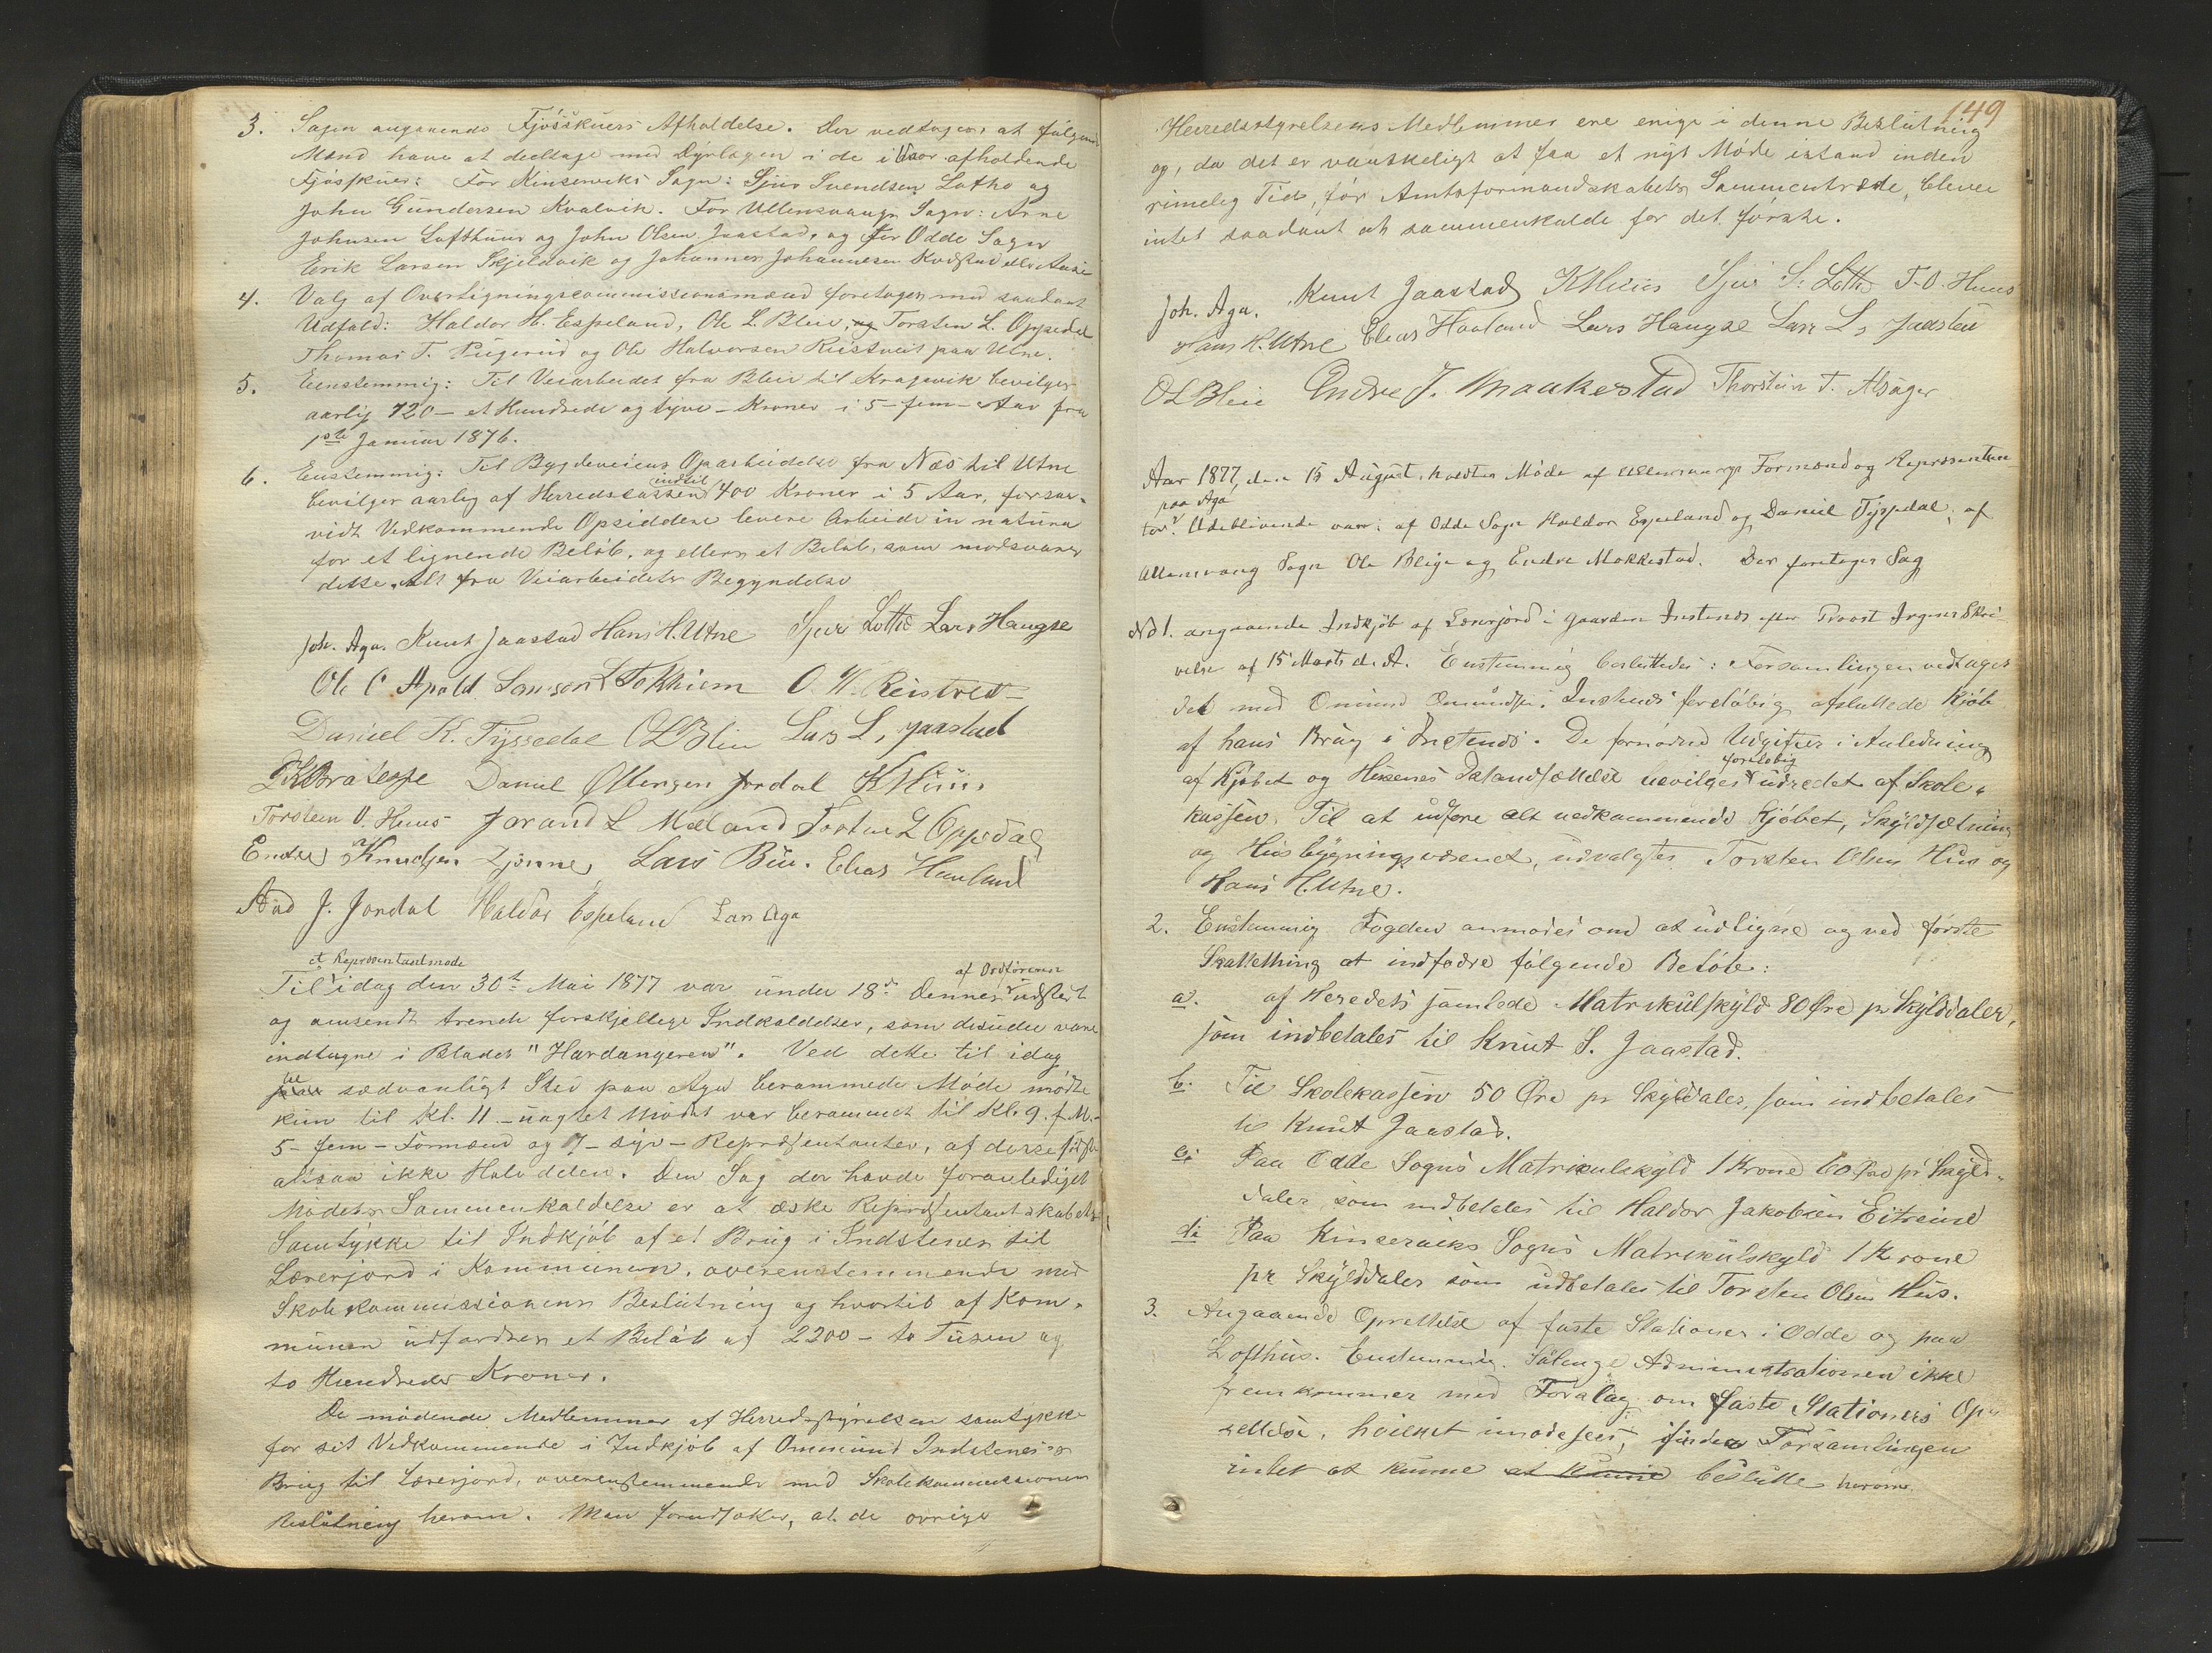 3. Sagen angaaende Fjösskuers Afholdelse. Der vedtoges, at følgende
Mænd have at deeltage med Dyrlægen i de i Vaar afholdende
Fjösskuer: For Kinserviks Sogn: Sjur Svendsen Lotho og
John Gundersen Kvalvik. For Ullensvangs Sogn: Arne
Johnsen Lofthuus og John Olsen Jaastad, og for Odde Sogn
Erik Larsen Skjeldvik og Johannes Johannesen
4. Valg af Overligningscommissionsmænd foretoges med saadant
Udfald: Haldor H. Espeland, Ole L. Bleie, og Torsten L. Oppedal
Thomas T. og Ole Halvorsen Reistveit paa Utne.
5. Eenstemmig: Til Veiarbeidet fra Bleie til Kragevik bevilges
aarlig 120 - et Hundrede og tyve - Kroner i 5 - fem - Aar fra
1ste Januar 1876.
6. Eenstemmig: Til Bygdeveiens Oparbeidelse fra Næs til Utne
bevilges aarlig af Herredscassen indtil 400 Kroner i 5 Aar, forsaa-
vidt Vedkommende Opsiddere levere Arbeide in natura
for et lignende Beløb, og ellers et Beløb, som modsvarer
dette. Alt fra Veiarbeidets Begyndelse
Joh. Aga. Knut Jaastad Hans H. Utne Sjur Lotho Lars Haugse
Ole O. Apold L Tokheim O. H. Reistvet
Daniel K. Tyssedal O L Bleie Lars L. Jaastad
Daniel Jordal
Torsten O. Huus Jorand L Mæland Torsten L Oppedal
Endre Knudsen Lars Bu. Elias Hauland
Aad J. Jordal Haldor Espeland Lars Aga
et Repræsentantmøde af Ordføreren
Til idag den 30te Mai 1877 var under 18de dennes udstedt
og omsendt trende forskjellige Indkaldelser, som desuden vare
indtagne i Bladet "Hardangeren". Ved dette til idag
til sædvanligt Sted paa Aga berammede Møde mødte
kun til Kl. 11 - uagtet Mødet var berammet til Kl. 9 f.M. -
5 - fem - Formænd og 7 - syv - Repræsentanter, af disse sidste
altsaa ikke Halvdelen. Den Sag der havde foranlediget
Mødets Sammenkaldelse er at æske Repræsentantskabets
Samtykke til Indkjøb af et Brug i Indstenes til
Lærerjord i Kommunen, overensstemmende med
Skolekommissionens Beslutning og hvortil af Kom-
munen udfordres et Beløb af 2200 - to Tusen og
to Hundrede Kroner.
De mødende Medlemmer af Herredsstyrelsen samtykke
for sit Vedkommende i Indkjøb af Ommund Indstenes's
Brug til Lærerjord, overensstemmende med Skolekommissionens
Beslutning herom. Man forudsætter, at de øvrige
149
Herredsstyrelsens Medlemmer ere enige i denne Beslutning
og, da det er vanskeligt at faa et nyt Møde istand inden
rimelig Tid, før Amtsformandskabets Sammentræde, bliver
intet saadant at sammenkalde for det første.
Joh. Aga. Knut Jaastad Sjur S. Lotho T. O. Huus
Hans H. Utne Elias Hauland Lars Haugse Lars L. Jaastad
O L Bleie Endre J. Maakestad Thorstein T. Alsager
Aar 1877, den 15 August, holdtes Møde af Ullensvangs Formænd og Repræsentan-
paa Aga
ter. Udeblivende vare: af Odde Sogn Haldor Espeland og Daniel Tyssedal, af
Ullensvang Sogn Ole Bleie og Endre Mokkestad. Der foretoges Sag
No 1. angaaende Indkjøb af Lærerjord i Gaarden Instenes efter Provst Irgens Skri-
velse af 15 Marts d. A. Enstemmig besluttedes: Forsamlingen vedtager
det med Omund Omundsen Instenes foreløbig afsluttede Kjøb
af hans Brug i Instenes. De fornødne Udgifter i Anledning
af Kjøbet og Husenes Istandsættelse bevilges foreløbig udredet af Skole-
kassen. Til at udføre alt vedkommende Kjøbet, Skyldsætning
og Husbygningsvæsenet, udvalgtes Torsten Olsen Hus og
Hans H. Utne.
2. Enstemmig Fogden anmodes om at udligne og ved første
Skattething at indfodre følgende Beløb:
a. af Heredets samlede Matrikulskyld 80 Øre pr Skylddaler,
som indbetales til Knut S. Jaastad.
b. Til Skolekassen 50 Øre pr Skylddaler, som indbetales
til Knut Jaastad.
c. Paa Odde Sogns Matrikulskyld 1 Krone 60 Øre pr Skyld-
daler som indbetales til Haldor Jakobsen Eitreine
d. Paa Kinserviks Sogns Matrikulskyld 1 Krone
pr Skylddaler som udbetales til Torsten Olsen Hus.
3. Angaaende Oprettelse af faste Stationer i Odde og paa
Lofthus. Enstemmig. Sålenge Administrationen ikke
fremkommer med Forslag om faste Stationers Op-
rettelse, hvilket imødesees, finder Forsamlingen
intet at kunne at kunne beslutte herom.